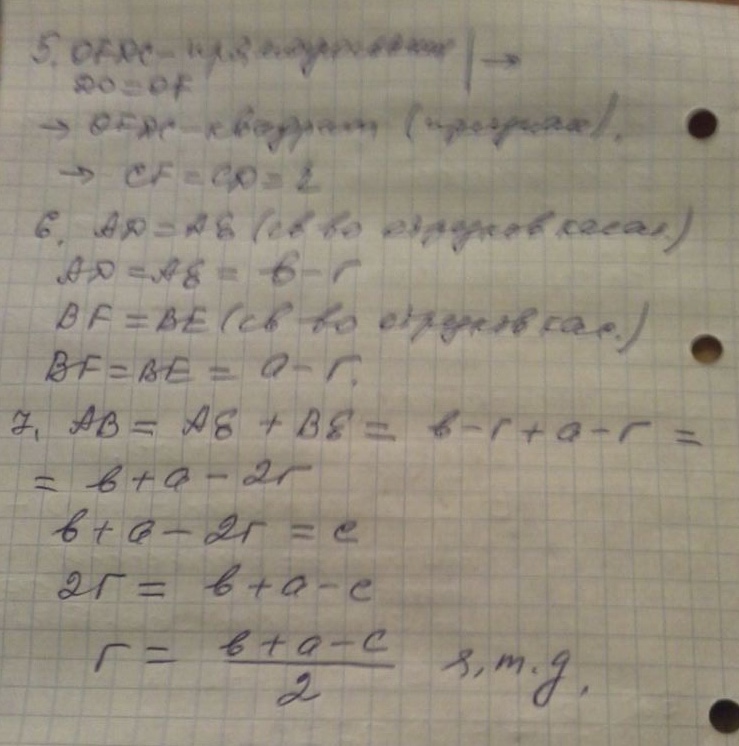 5. OFDC - прямоугольник | →
DO = OF
→ OFDC - квадрат (признак).
→ CF = CD = r
6. AD = AE (св-во отрезков касат.)
AD = AE = в - r
BF = BE (св-во отрезков кас.)
BF = BE = a - r.
7. AB = AE + BE = в - r + a - r =
= в + a - 2r
в + a - 2r = c
2r = в + a - c
r = (в + a - c) / 2 ч.т.д.